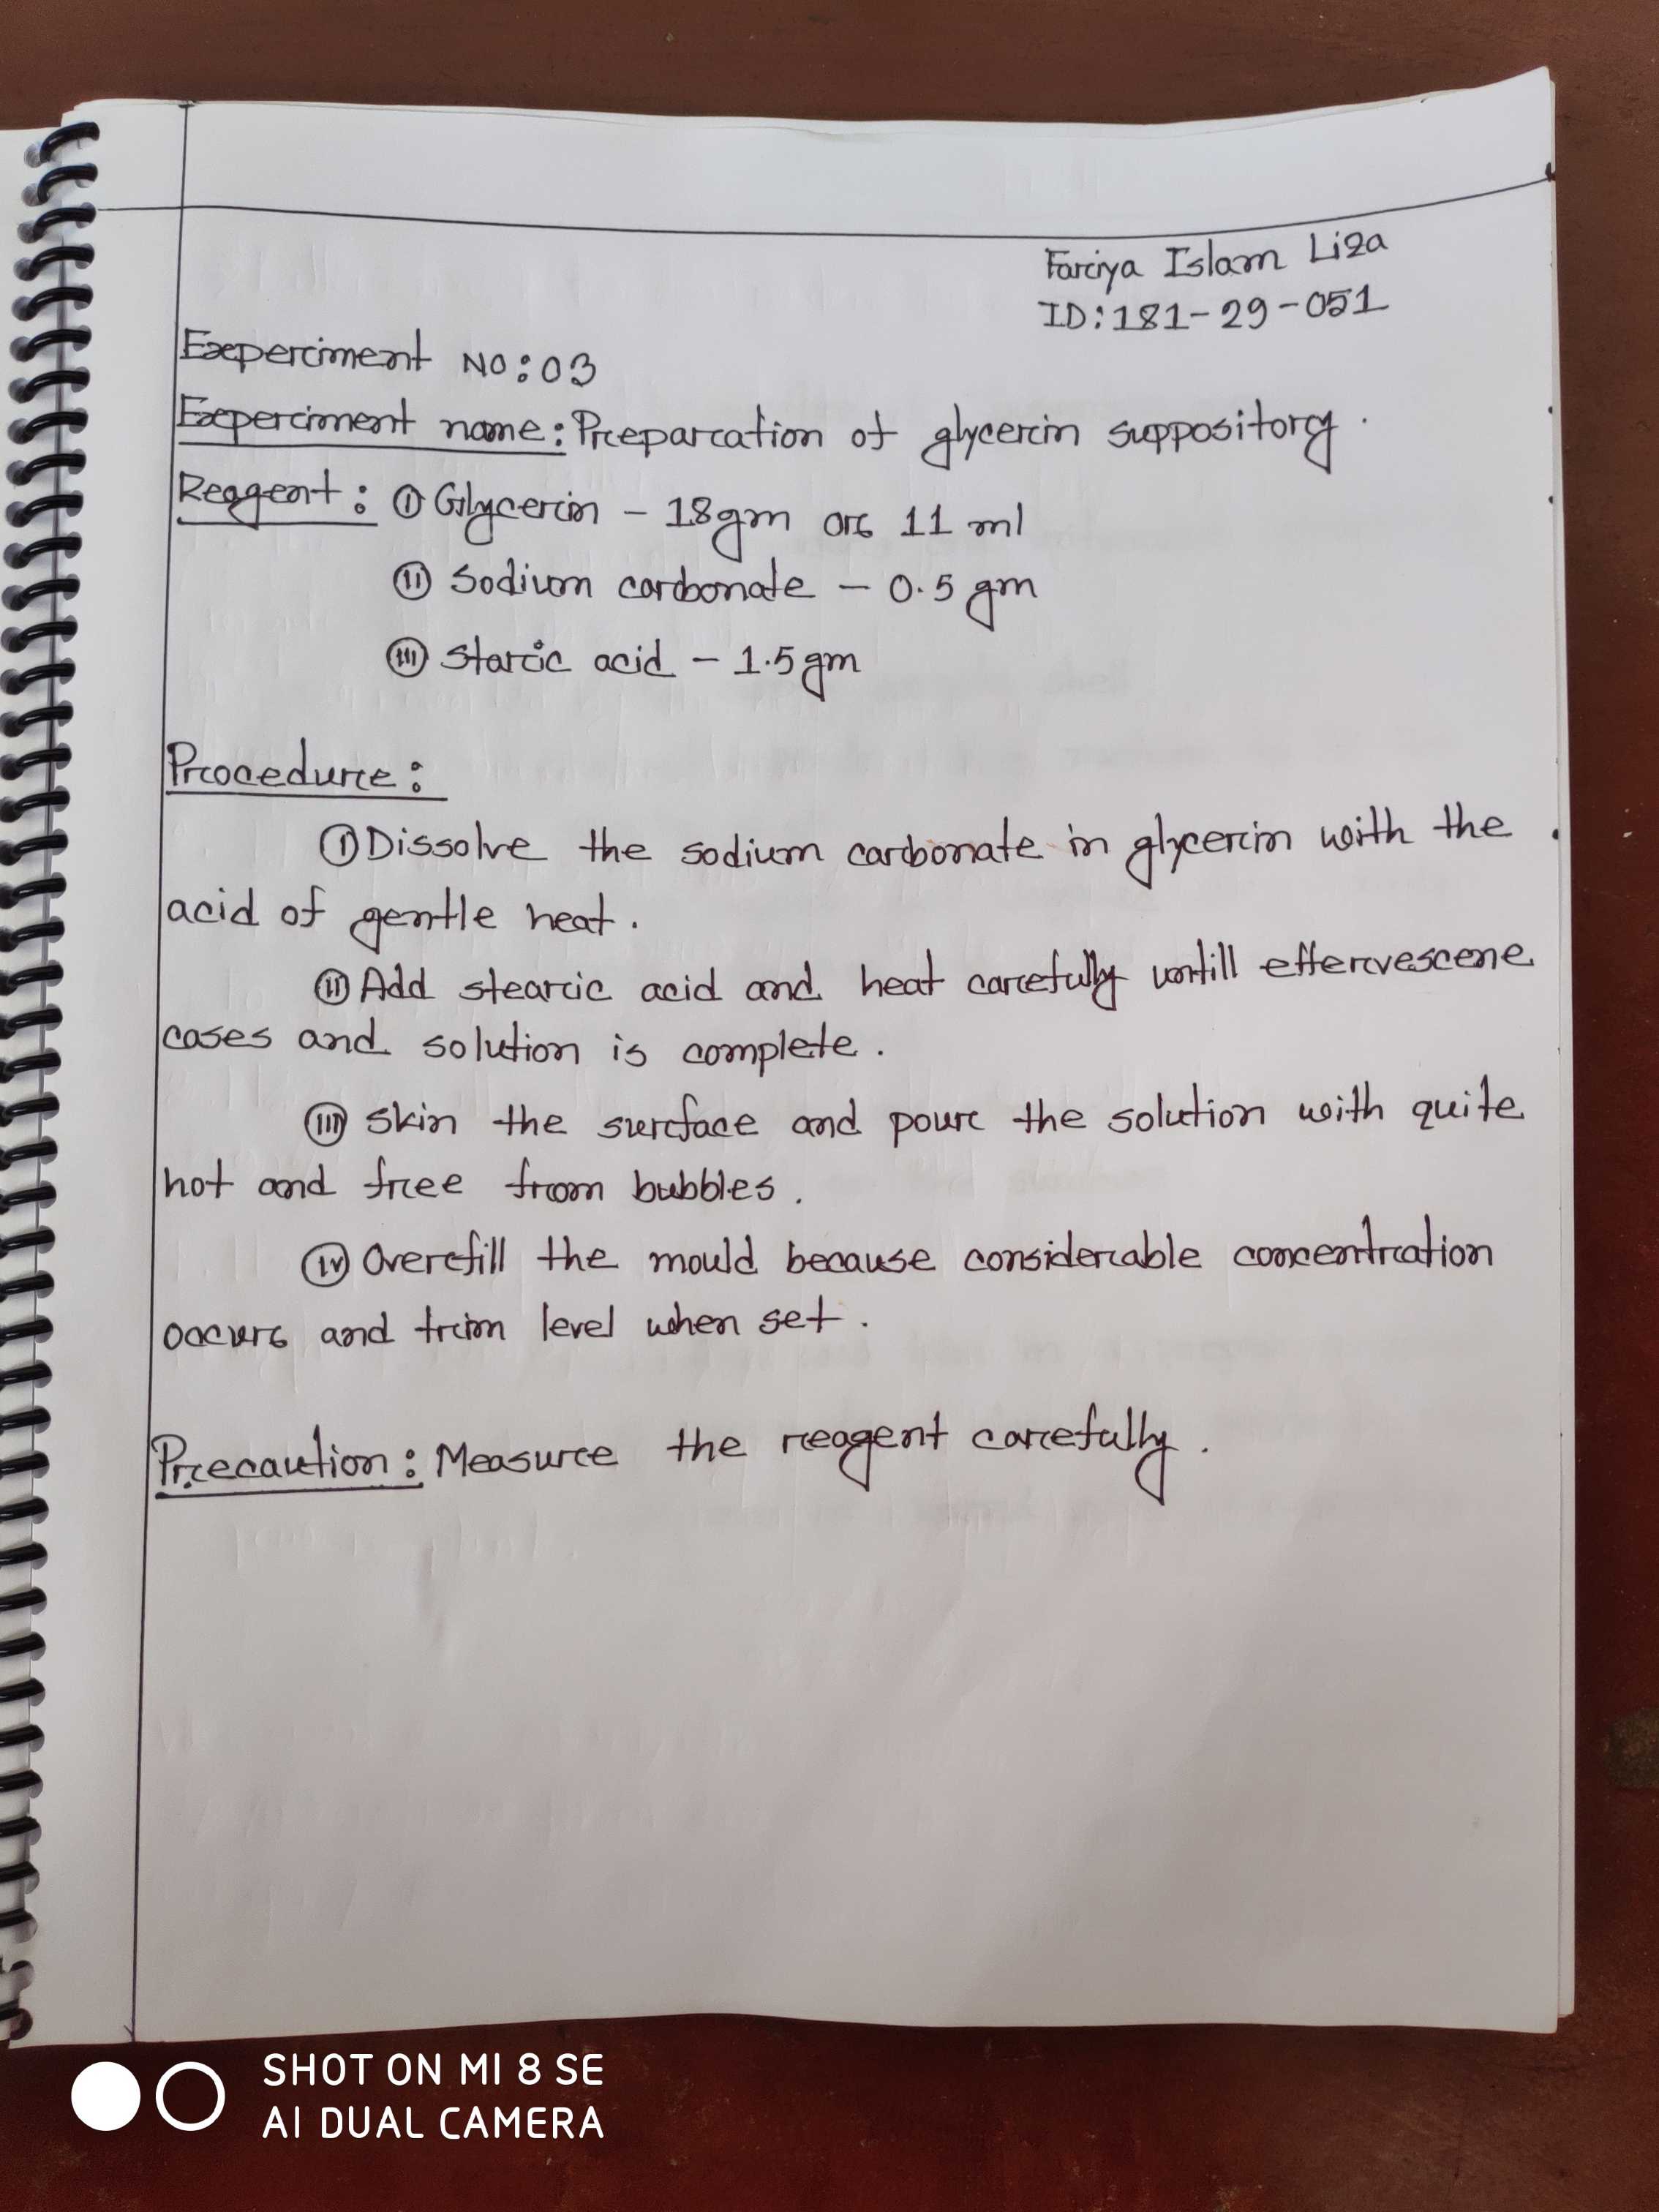 Fariya Islam Liza
ID: 181-29-051
Experiment NO: 03
Experiment name: Preparation of glycerin suppository.
Reagent: (i) Glycerin - 18gm or 11 ml
(ii) Sodium carbonate - 0.5 gm
(iii) Staric acid - 1.5gm
Procedure:
(i) Dissolve the sodium carbonate in glycerin with the
acid of gentle heat.
(ii) Add stearic acid and heat carefully untill effervescene
cases and solution is complete.
(iii) Skin the surface and pour the solution with quite
hot and free from bubbles.
(iv) Overfill the mould because considerable concentration
occurs and trim level when set.
Precaution: Measure the reagent carefully.
SHOT ON MI 8 SE
AI DUAL CAMERA